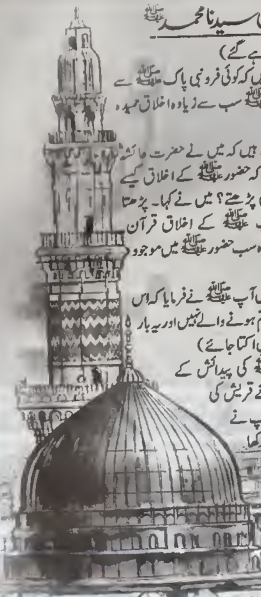 سیدنا محمد ﷺ
گئے)
کہ کوئی فرد نبی پاک ﷺ سے
سب سے زیادہ اخلاق حمیدہ
ہیں کہ میں نے حضرت عائشہ
کہ حضور ﷺ کے اخلاق کیسے
پڑھتے؟ میں نے کہا۔ پڑھتا
ﷺ کے اخلاق قرآن
سب حضور ﷺ میں موجود
آپ ﷺ نے فرمایا کہ اس
ہونے والے نہیں اور یہ بار
اکتا جائے)
کی پیدائش کے
قریش کی
نے